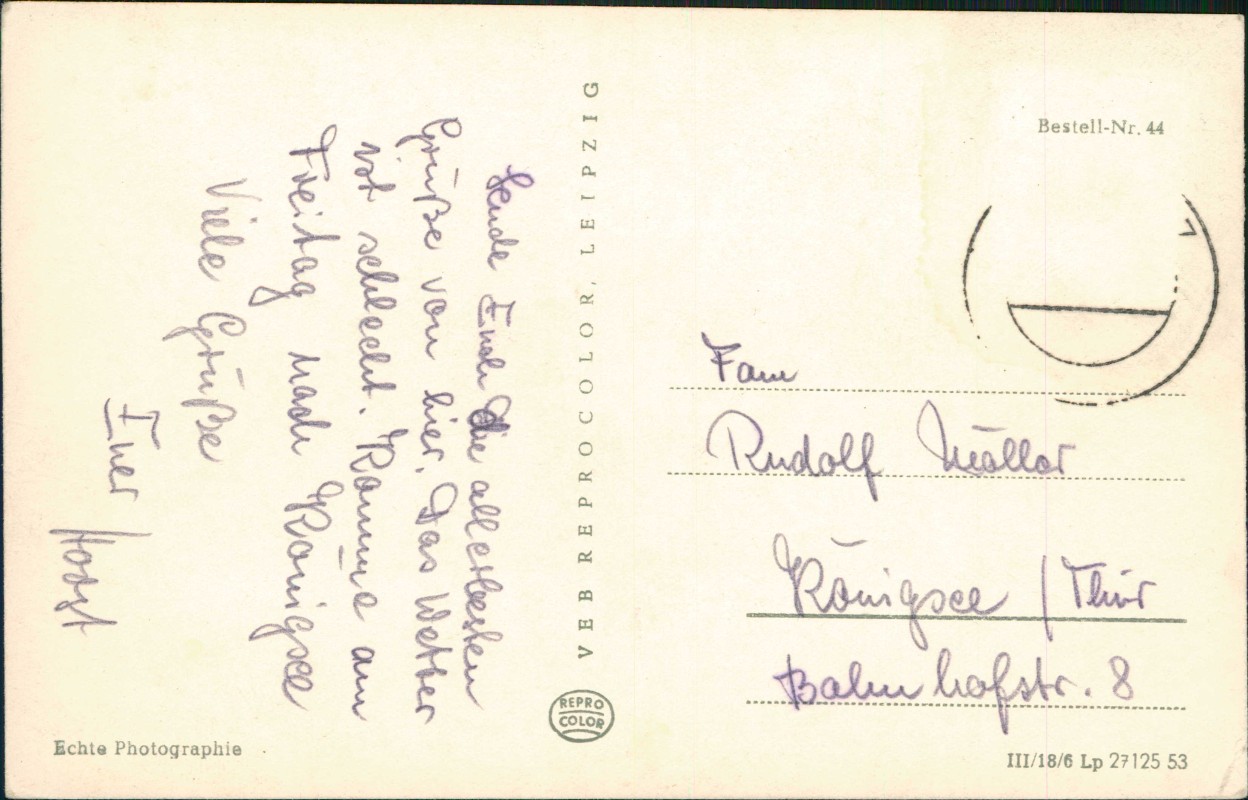 Sende Euch die allerbesten
Grüße von hier. Das Wetter
ist schlecht. Komme am
Freitag nach Königsee
Viele Grüße
Euer
Horst
VEB REPROCOLOR, LEIPZIG
REPRO
COLOR
Echte Photographie
Bestell-Nr. 44
Fam
Rudolf Möller
Königsee / Thür
Bahnhofstr. 8
III/18/6 Lp 27125 53